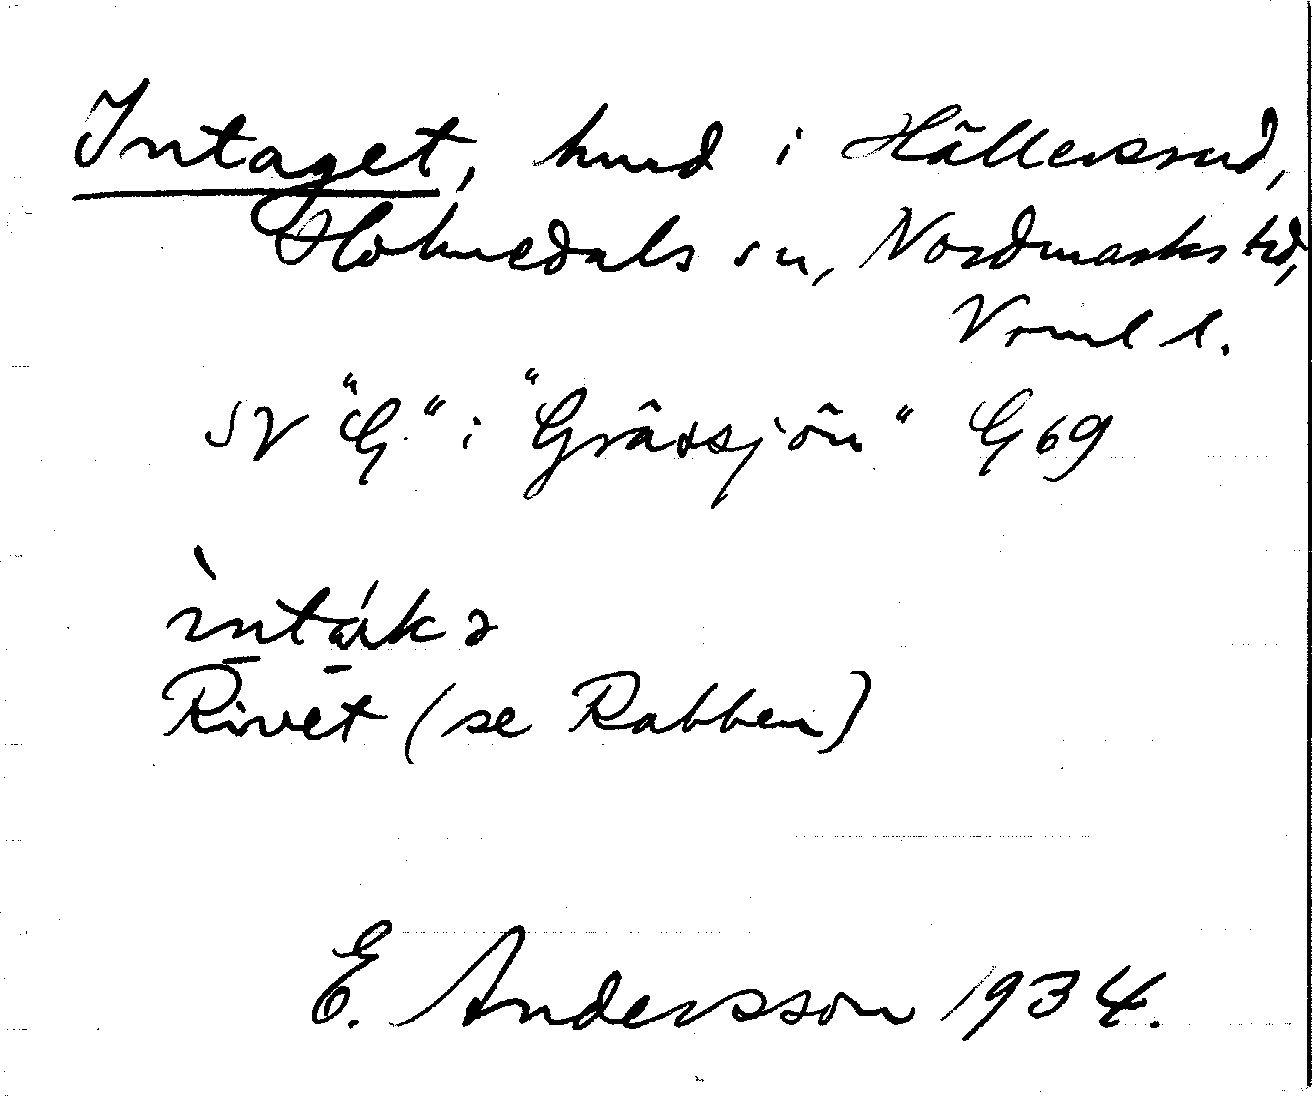 Intaget, hmd i Hällersrud,
Holmedals sn, Nordmarks hd,
Vrml l.
SV "G" i "Gråssjön" G 69
ìntákə
Rivet (se Rabben)
E. Andersson 1934.